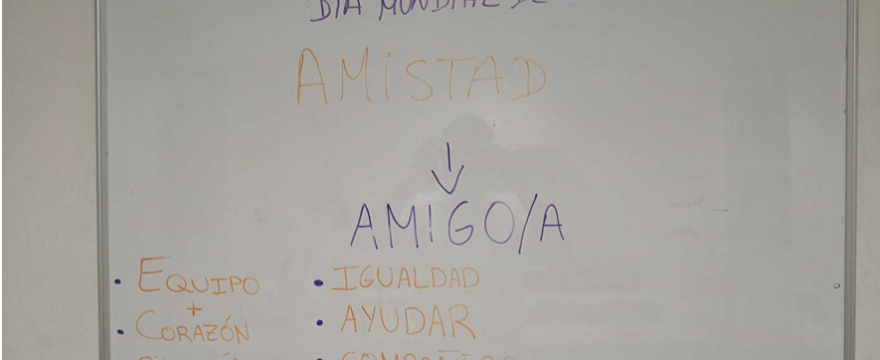 DIA MUNDIAL DE
AMiSTAD
↓
AMIGO/A
• EQUIPO
+
• CORAZÓN
• IGUALDAD
• AYUDAR